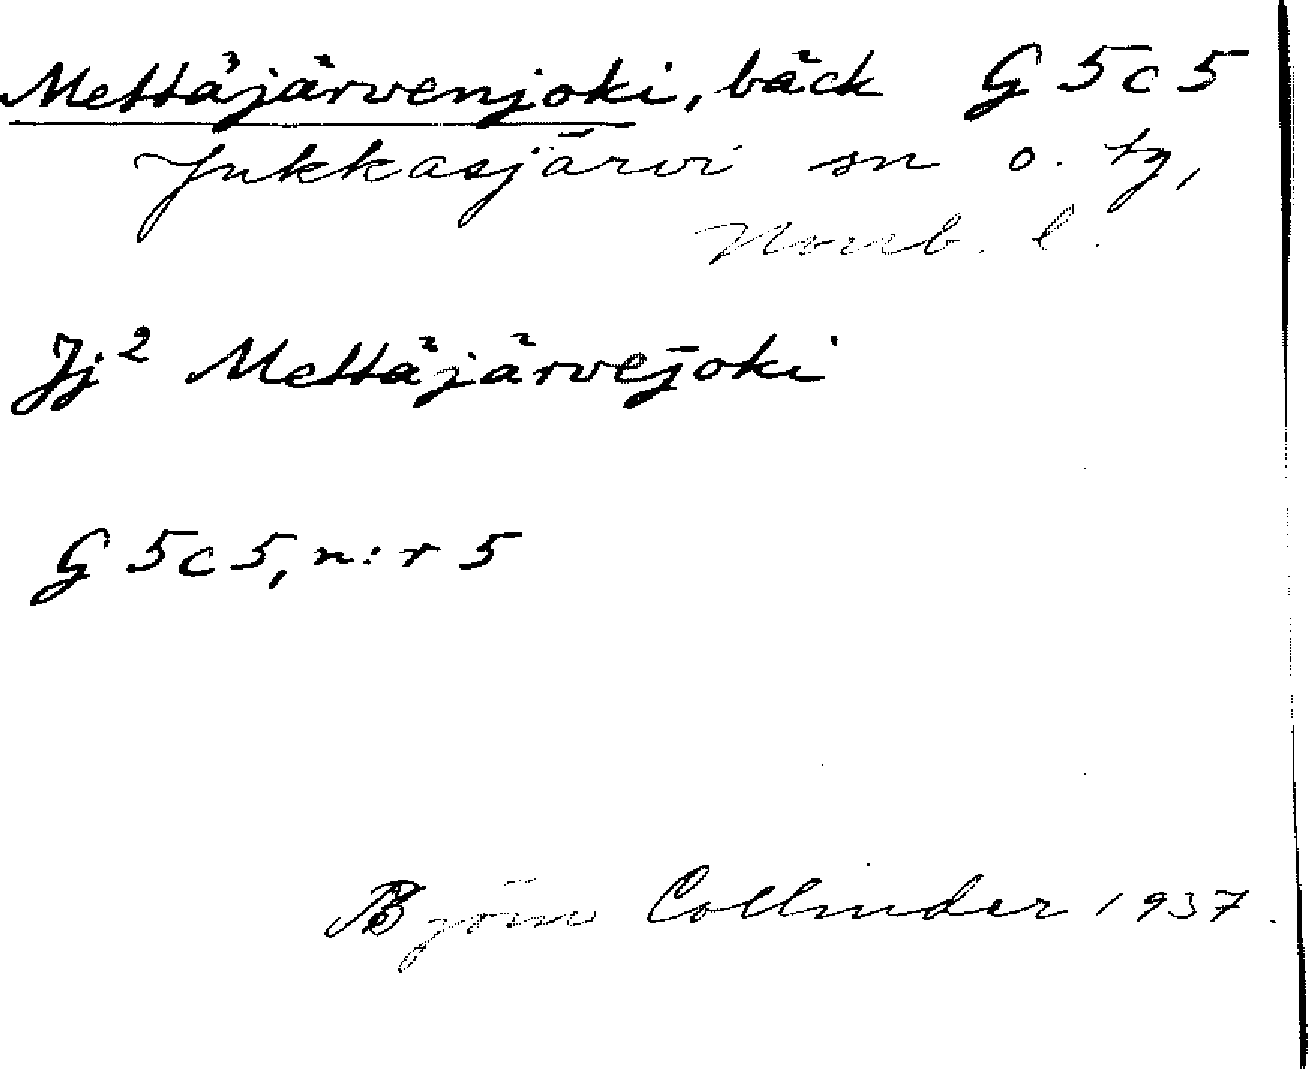 Mettäjärvenjoki, bäck G 5 c 5
Jukkasjärvi sn o. tg,
Norrb. l.
Jj² Mettäjärvejoki
G 5 c 5, n:r 5
Björn Collinder 1937.